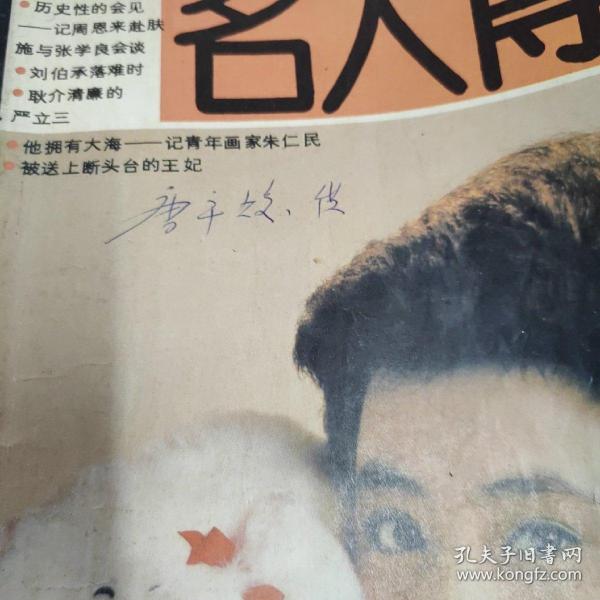 历史性的会见
——记周恩来赴肤
施与张学良会谈
刘伯承落难时
耿介清廉的
严立三
名人传
他拥有大海——记青年画家朱仁民
被送上断头台的王妃
孔夫子旧书网
www.kongfz.com